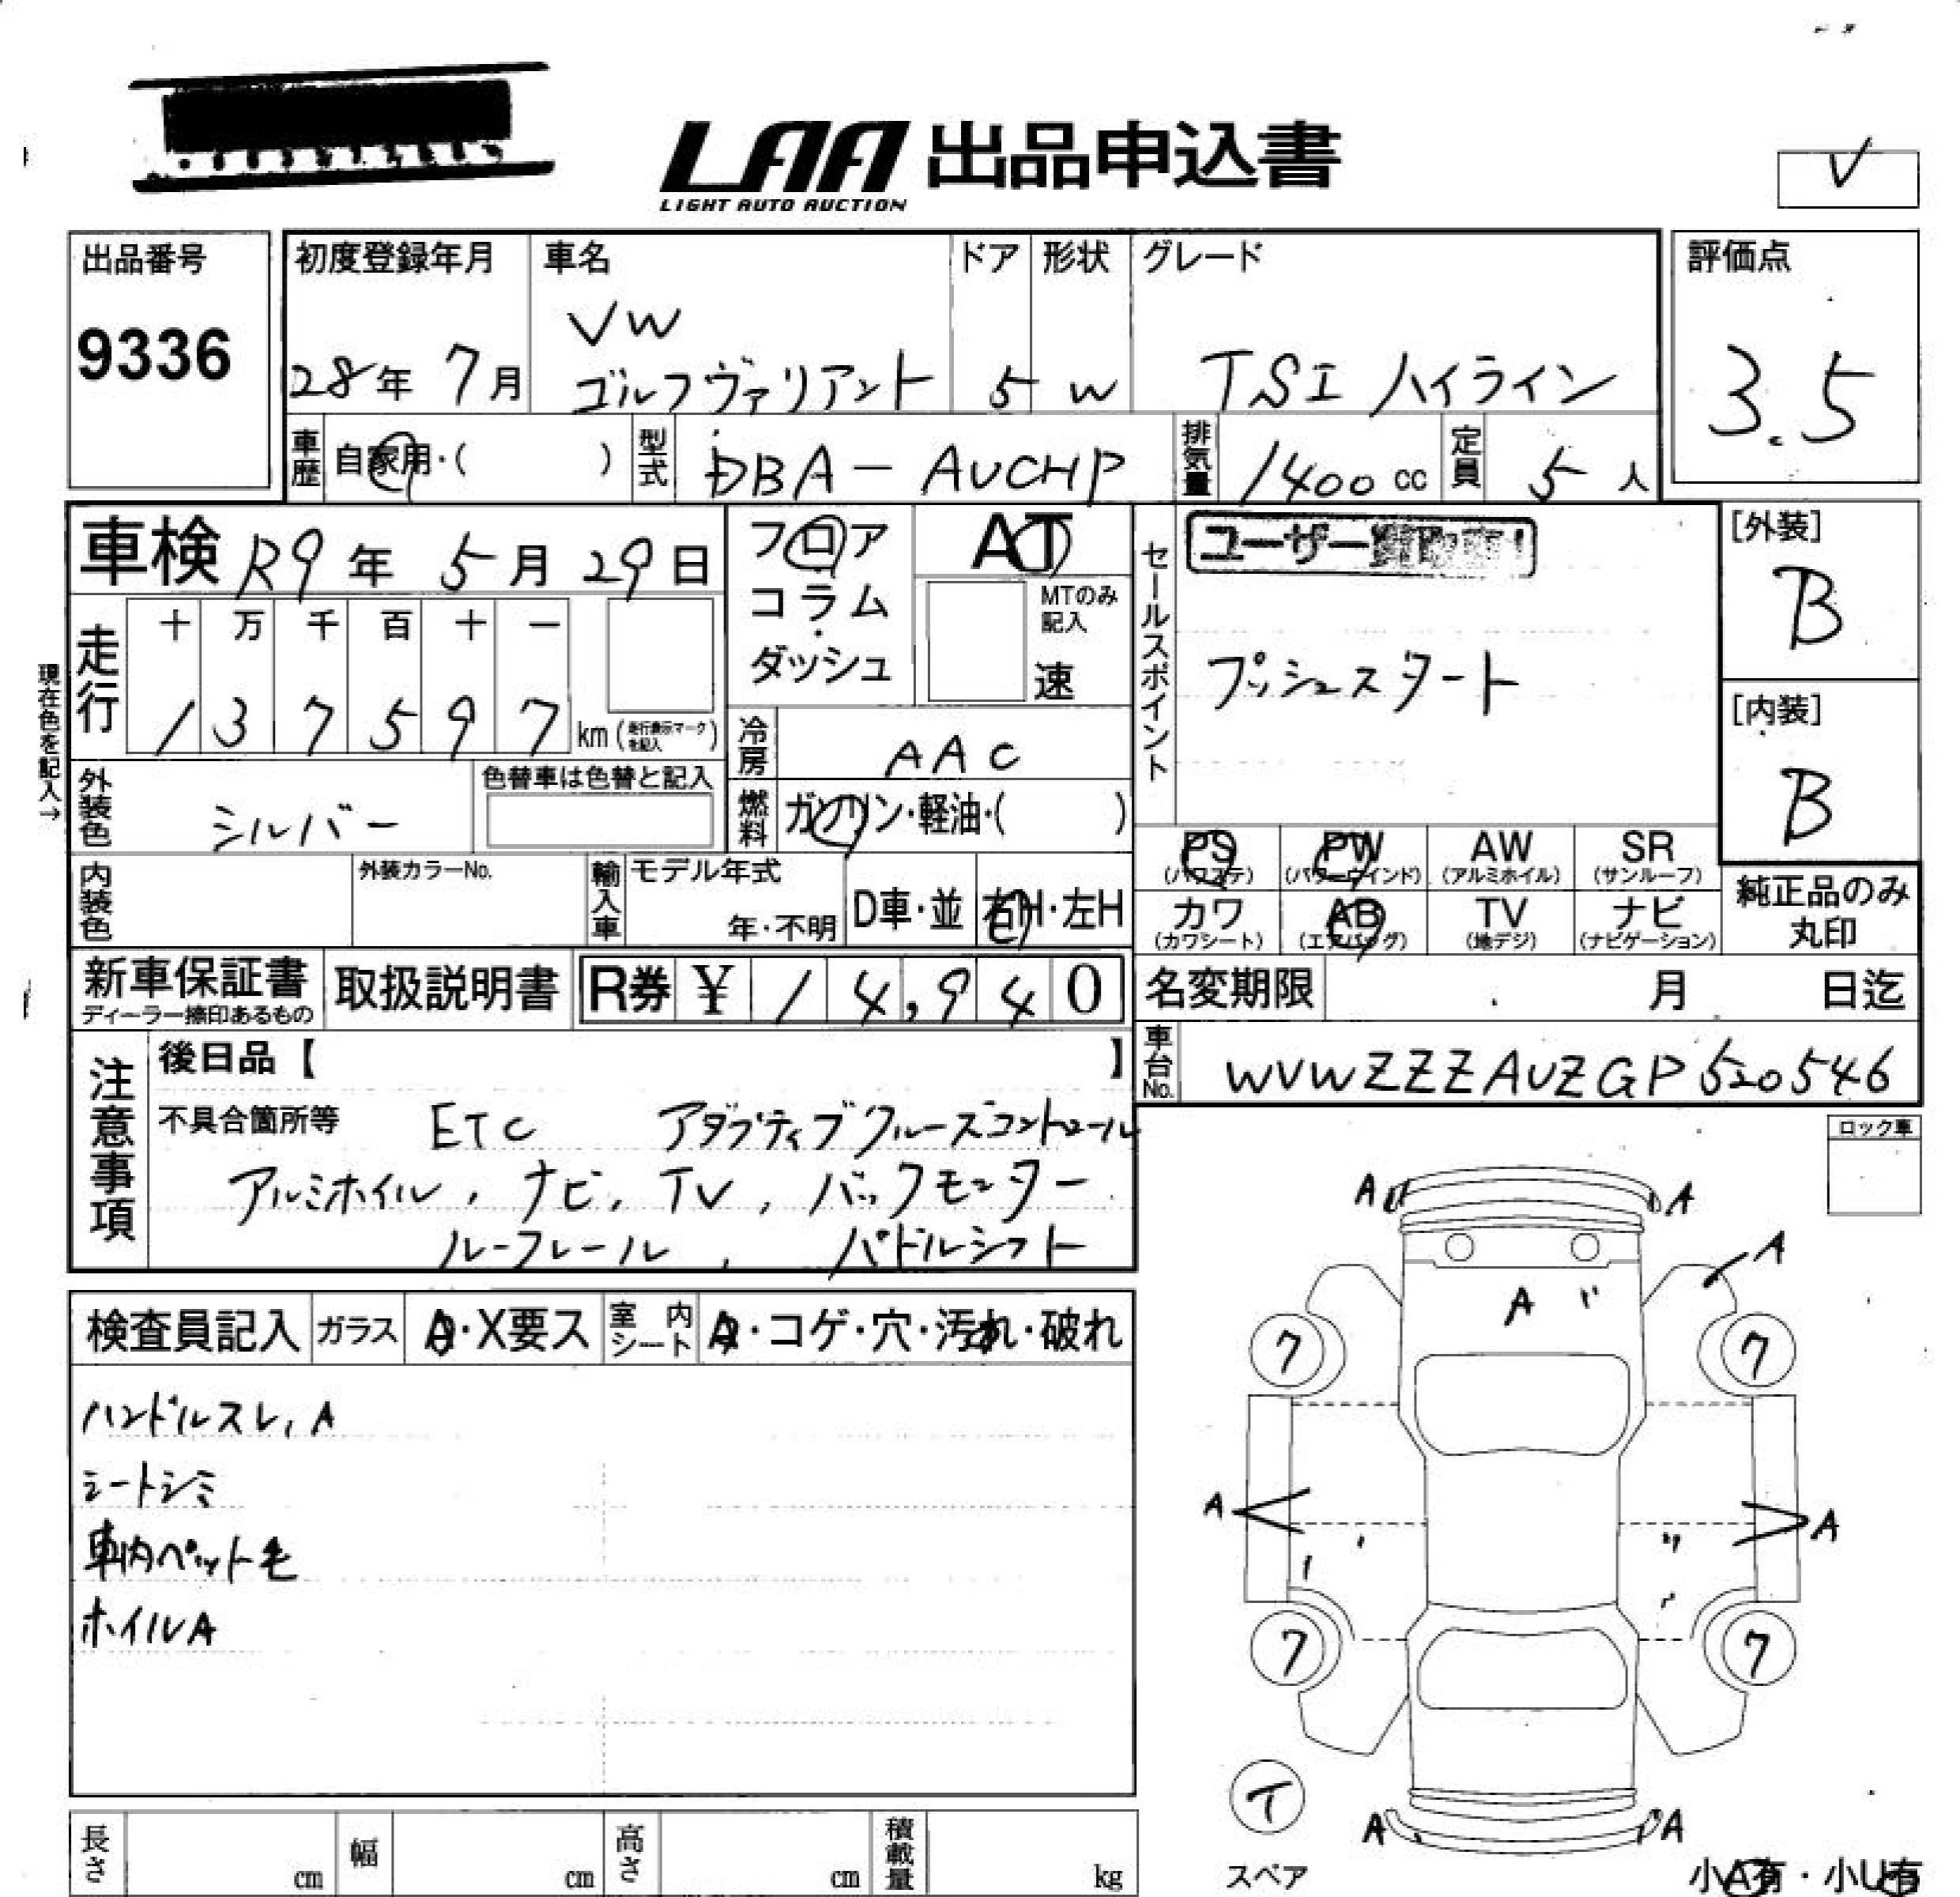 LAA 出品申込書
LIGHT AUTO AUCTION
V
出品番号
9336
初度登録年月
28年 7月
車名
VW
ゴルフヴァリアント
ドア
5
形状
W
グレード
TSI ハイライン
評価点
3.5
車歴 自家用・( )
型式 DBA-AUCHP
排気量 1400 cc
定員 5 人
車検 R9年 5月 29日
フロア
コラム
ダッシュ
AT
MTのみ
記入
速
セールスポイント
ユーザー
プッシュスタート
[外装]
B
[内装]
B
現在色を記入→
走行
十 万 千 百 十 一
1 3 7 5 9 7 km (走行表示マークを記入)
冷房 AAC
燃料 ガソリン・軽油・( )
外装色 シルバー
色替車は色替と記入
内装色
外装カラーNo.
輸入車
モデル年式
年・不明
D車・並
右H・左H
PS
(パワステ)
PW
(パワーウインド)
AW
(アルミホイル)
SR
(サンルーフ)
カワ
(カワシート)
AB
(エアバッグ)
TV
(地デジ)
ナビ
(ナビゲーション)
純正品のみ
丸印
新車保証書
ディーラー捺印あるもの
取扱説明書
R券 ¥ 14,940
名変期限 月 日迄
車台No. WVWZZZAUZGP520546
注意事項
後日品【 】
不具合箇所等 ETC アダプティブクルーズコントロール
アルミホイル, ナビ, TV, バックモニター
ルーフレール, パドルシフト
ロック車
検査員記入
ガラス A・X要ス
室内シート A・コゲ・穴・汚れ・破れ
ハンドルスレ, A
シートシミ
車内ペット毛
ホイルA
A A
A
A
7 7
A A
7 7
T
スペア
A A
小A有・小U有
長さ cm
幅 cm
高さ cm
積載量 kg